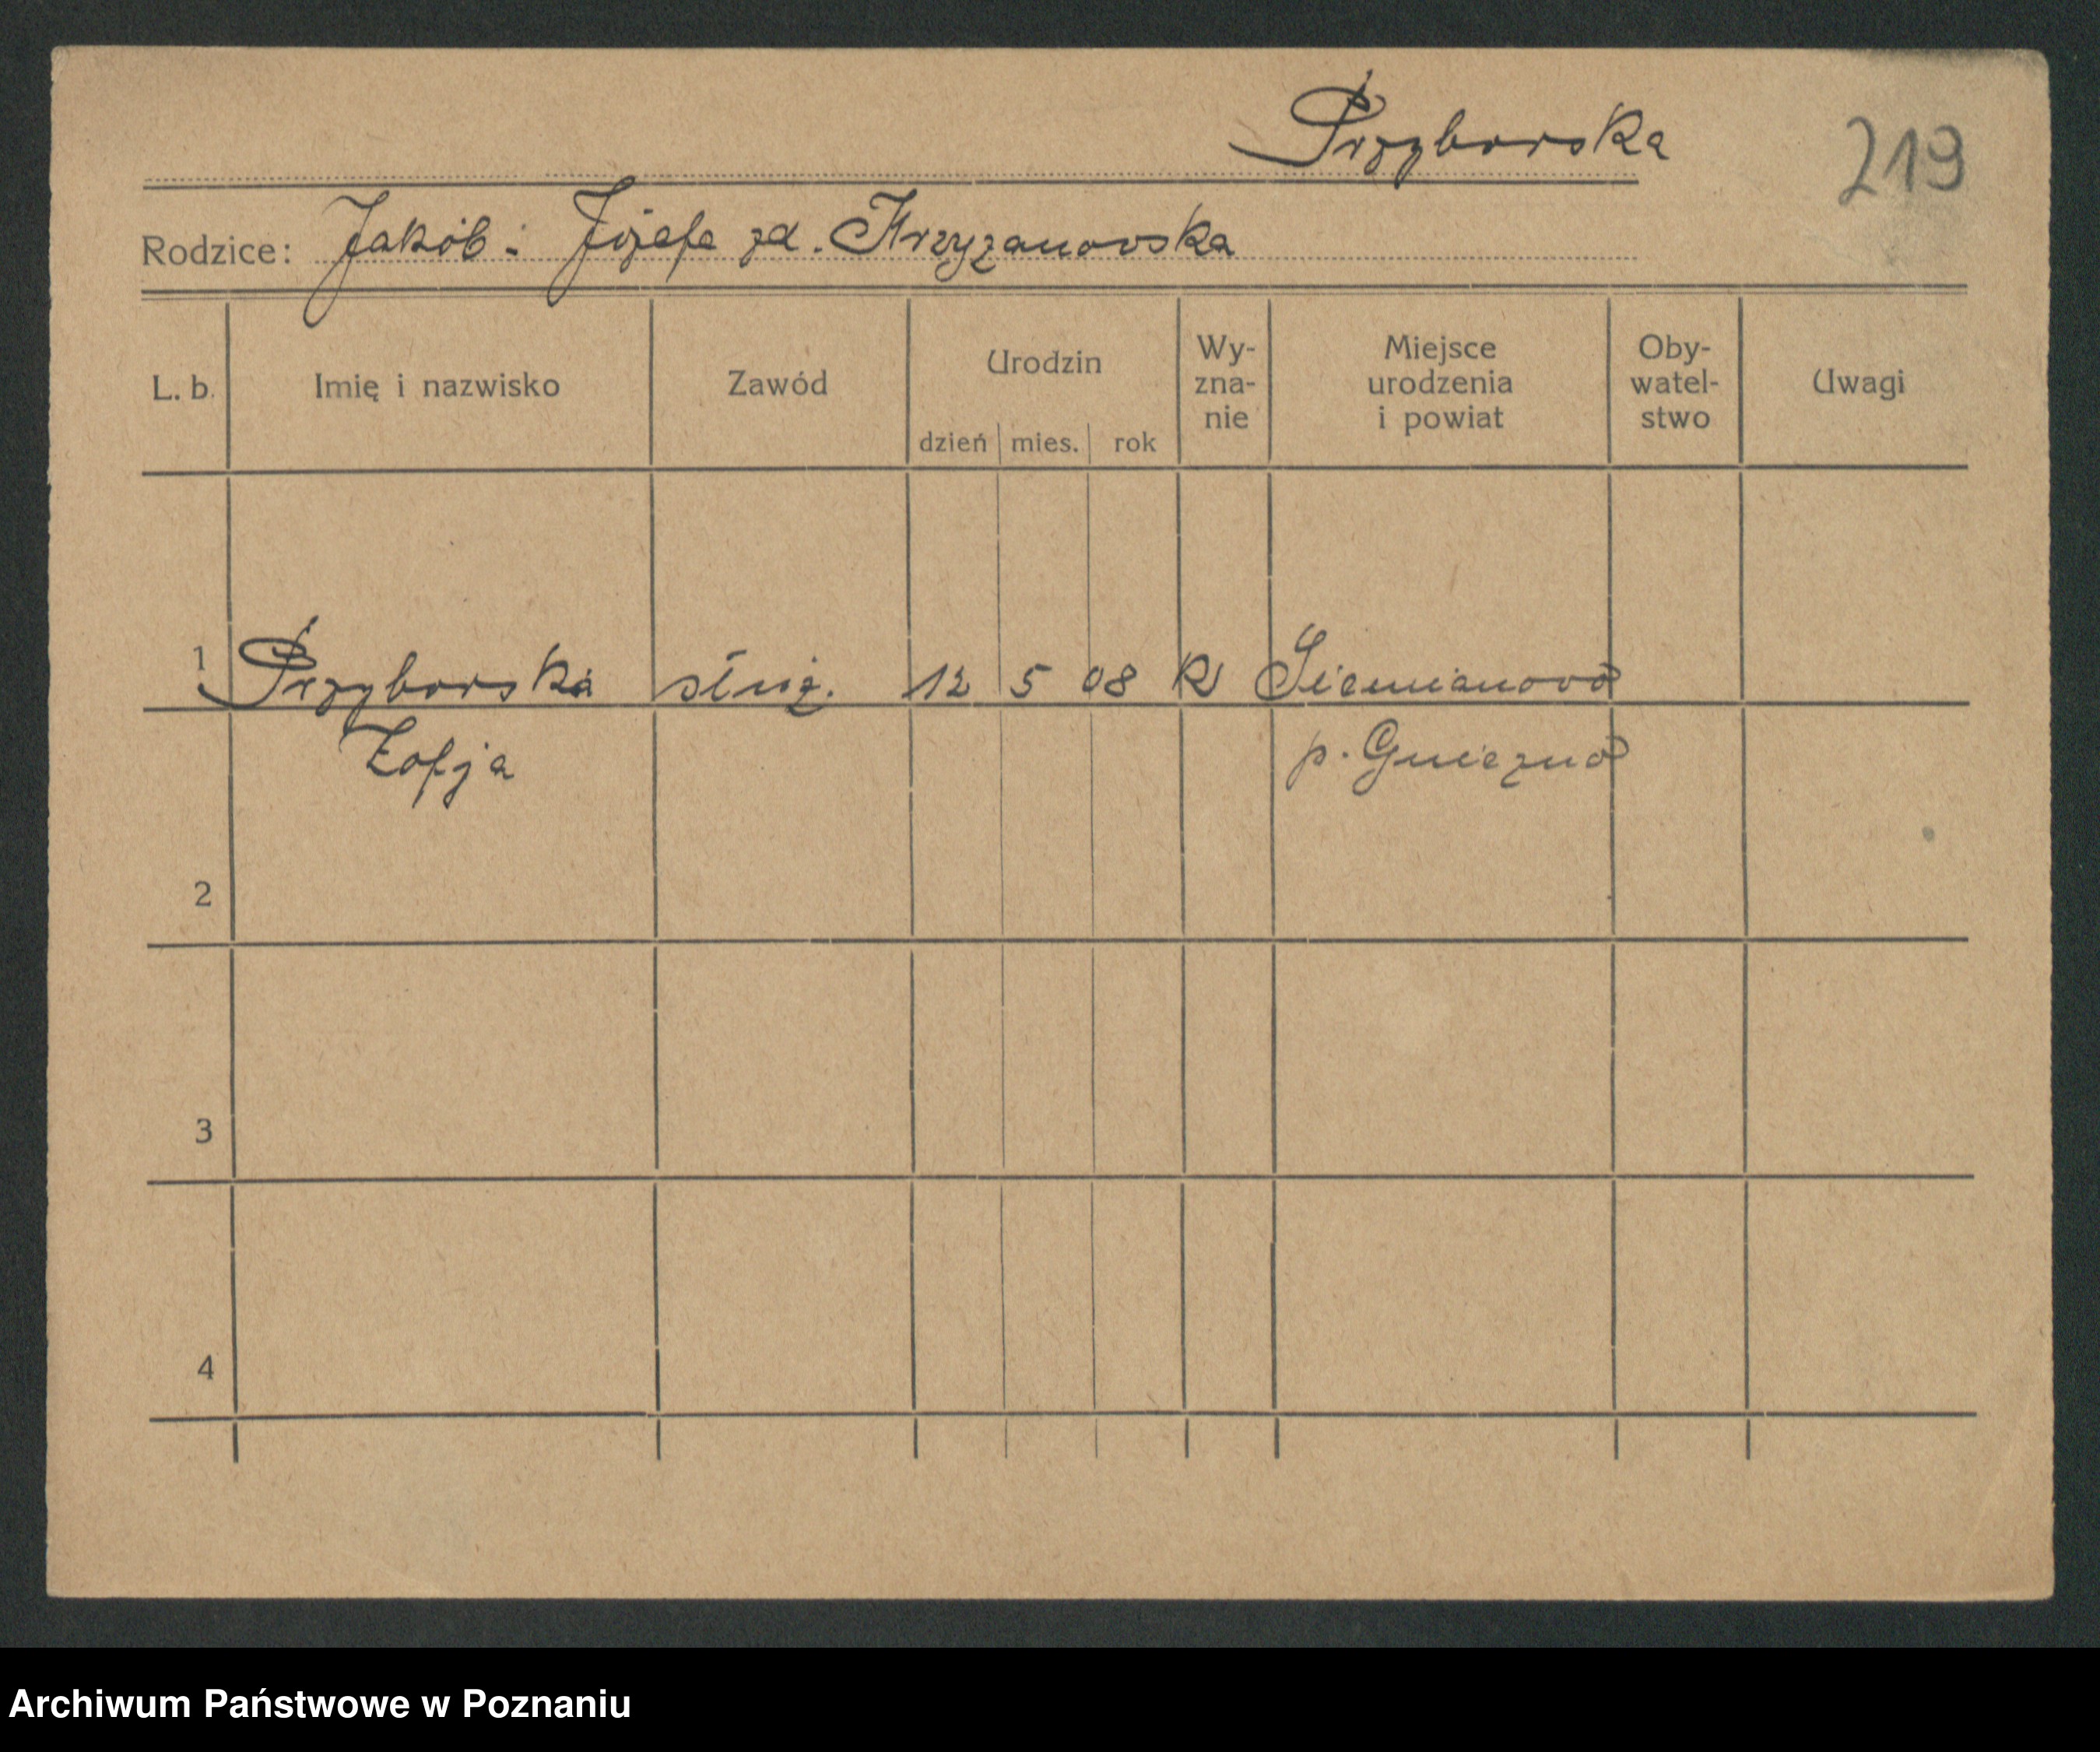 Przyborska
219
Rodzice: Jakób i Józefa zd. Krzyżanowska
L. b. Imię i nazwisko Zawód Urodzin dzień mies. rok Wy-zna-nie Miejsce urodzenia i powiat Oby-watel-stwo Uwagi
1 Przyborska służ. 12 5 08 R Siemianowo
Zofja p. Gniezno
2
3
4
Archiwum Państwowe w Poznaniu